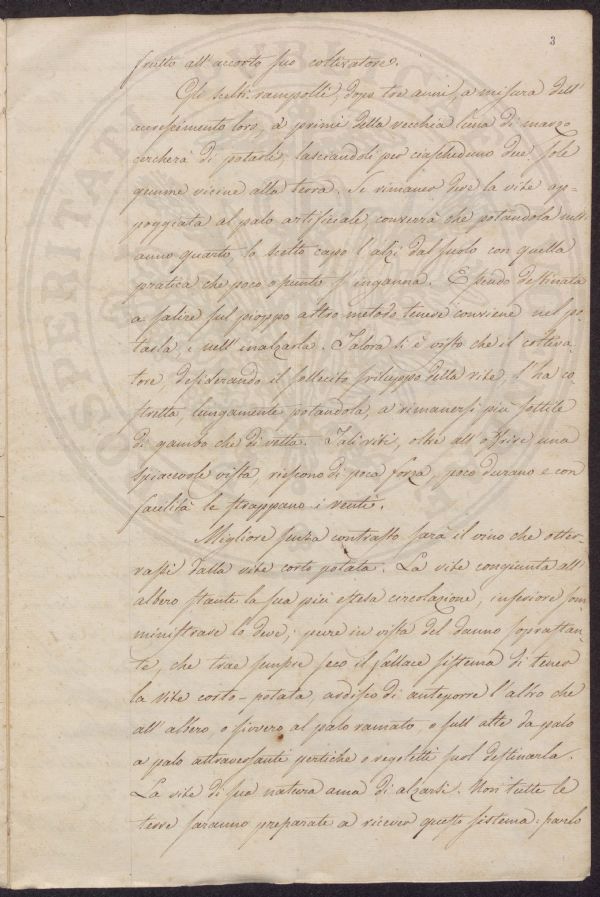 3
frutto all'accorto suo coltivatore.
Gli scelti rampolli, dopo tre anni, a misura dell'
accrescimento loro, a' primi della vecchia luna di marzo
cercherà di potarli, lasciandoli per ciascheduno due sole
gemme vicine alla terra. Se rimaner deve la vite ap=
poggiata al palo artificiale, converrà che potandola nell'
anno quarto, lo scelto capo l'alzi dal suolo con quella
pratica che poco o punto s'inganna. Essendo destinata
a salire sul pioppo altro metodo tenere conviene nel po=
tarla, e nell'inalzarla. Talora si è visto che il coltiva=
tore, desiderando il sollecito sviluppo della vite, l'ha co
stretta lungamente potandola, a rimanersi più sottile
di gambo che di vetta. Tali viti, oltre all'offrire una
spiacevole vista, riescono di poca forza, poco durano e con
facilità le strappano i venti.
Migliore senza contrasto sarà il vino che otter=
rassi dalla vite corto potata. La vite congiunta all'
albero stante la sua più estesa circolazione, inferiore som
ministrare lo deve; pure in vista del danno soprastan=
te, che trae sempre seco il fallace sistema di tener
la vite corto-potata, ardisco di anteporre l'altro che
all'albero, o sivvero al palo ramato, o sull'alte da palo
a palo attraversanti pertiche o regoletti suol destinarla.
La vite di sua natura ama di alzarsi. Non tutte le
terre saranno preparate a ricever questo sistema: parlo